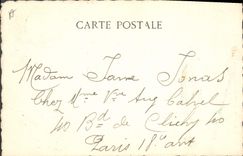 CARTE POSTALE
Madam Jane Jonas
Chez Mme Vve Aug Cabrel
40 Bd de Clichy 40
Paris 18e arr